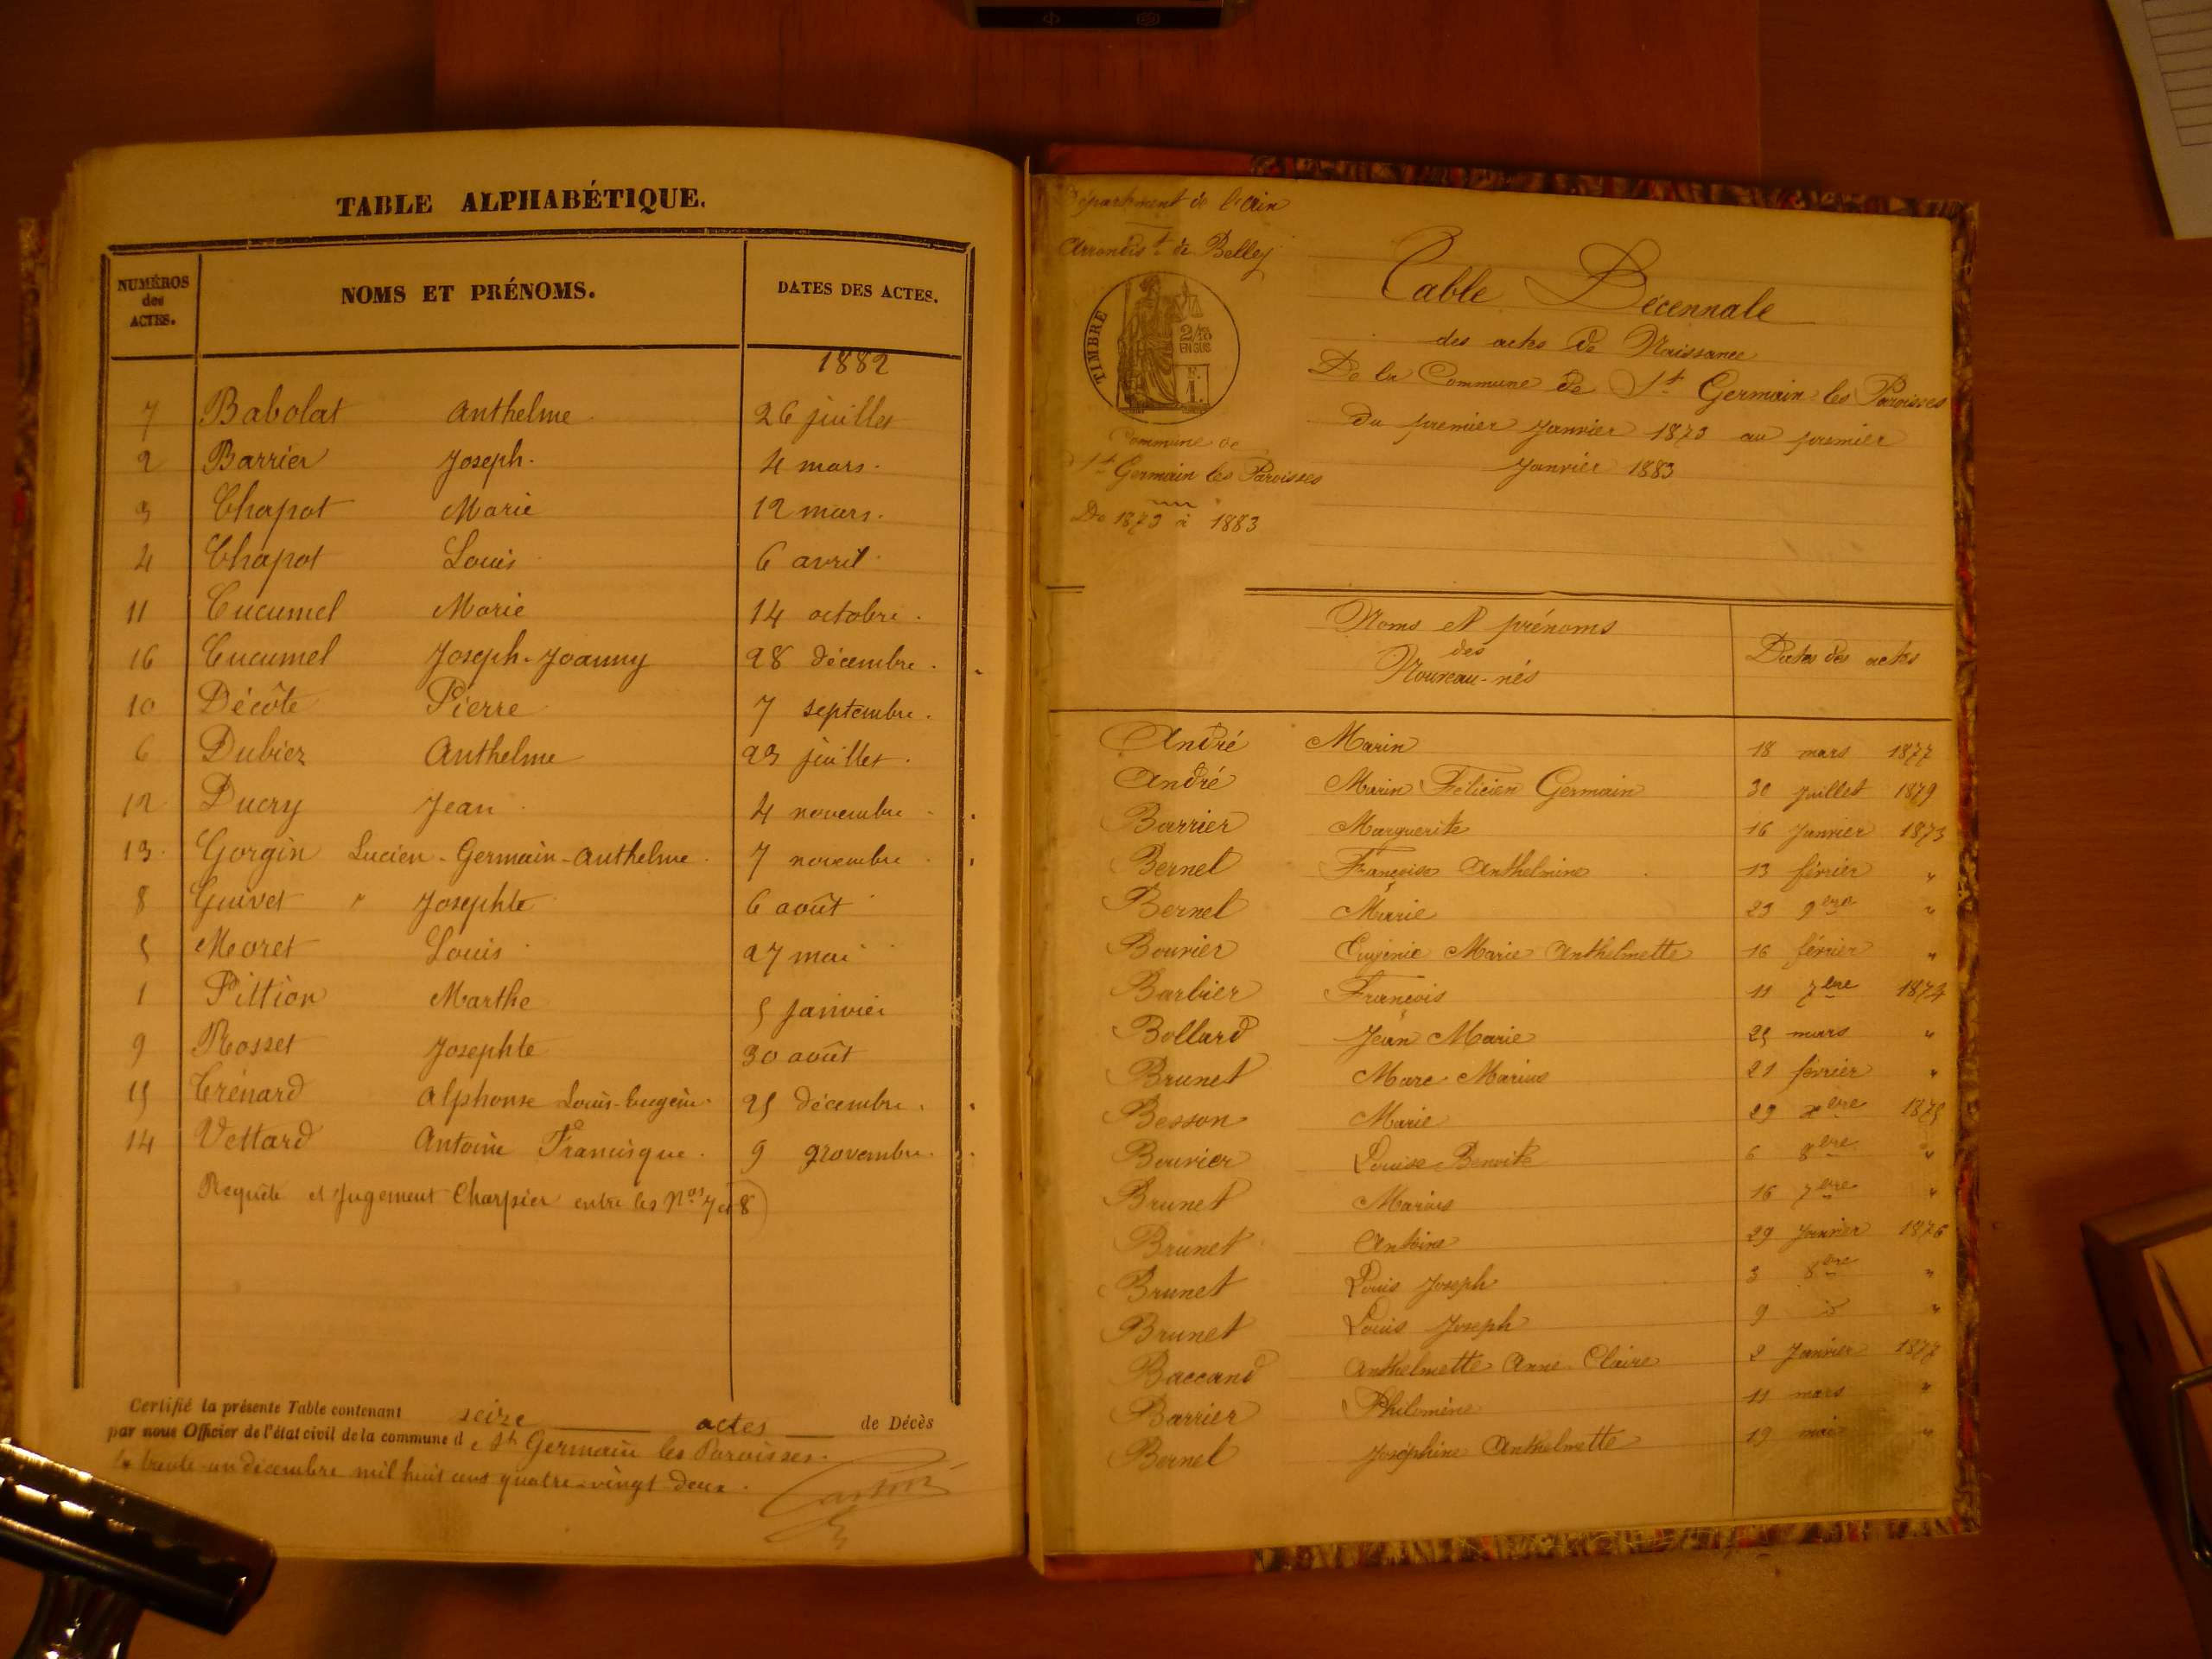 TABLE ALPHABÉTIQUE.
NUMÉROS des ACTES. NOMS ET PRÉNOMS. DATES DES ACTES.
1882
7 Babolat Anthelme 26 juillet
2 Barrier Joseph. 4 mars.
3 Chapot Marie 12 mars.
4 Chapot Louis 6 avril.
11 Cucumel Marie 14 octobre.
16 Cucumel Joseph-Joanny 28 décembre.
10 Décôte Pierre 7 septembre.
6 Dubiez Anthelme 23 juillet.
12 Ducry Jean 4 novembre
13. Gorgin Lucien-Germain-Anthelme. 7 novembre
8 Guivet Josephte 6 août
5 Moret Louis 27 mai
1 Pittion Marthe 5 janvier
9 Rosset Josephte 30 août
15 Trénard Alphonse Louis-Eugène. 25 décembre.
14 Vettard Antoine Francisque. 9 novembre.
Requête et Jugement Charpier entre les Nos 7 et 8)
Certifié la présente Table contenant seize actes de Décès
par nous Officier de l'état civil de la commune de St Germain les Paroisses.
le trente-un décembre mil huit cent quatre-vingt deux.
Département de l'Ain
Arrondist de Belley
TIMBRE
2/10 EN SUS
Commune de
St Germain les Paroisses
De 1873 à 1883
Table Décennale
des actes de Naissance
De la Commune de St Germain les Paroisses
Du premier Janvier 1873 au premier
Janvier 1883
Noms et prénoms
des
Nouveau-nés
Dates des actes
André Marin 18 mars 1877
André Marin Félicien Germain 30 Juillet 1879
Barrier Marguerite 16 Janvier 1873
Bernet Françoise Anthelmine 13 février "
Bernet Marie 23 9bre "
Bouvier Eugénie Marie Anthelmette 16 février "
Barbier François 11 7bre 1874
Bollard Jean Marie 25 mars "
Brunet Marc Marius 21 février "
Besson Marie 29 xbre 1875
Bouvier Louise Benoite 6 8bre "
Brunet Marius 16 7bre "
Brunet Antoine 29 Janvier 1876
Brunet Louis Joseph 3 8bre "
Brunet Louis Joseph 9 do "
Baccard Anthelmette Anne Claire 2 Janvier 1877
Barrier Philomène 11 mars "
Bernet Joséphine Anthelmette 19 mai "